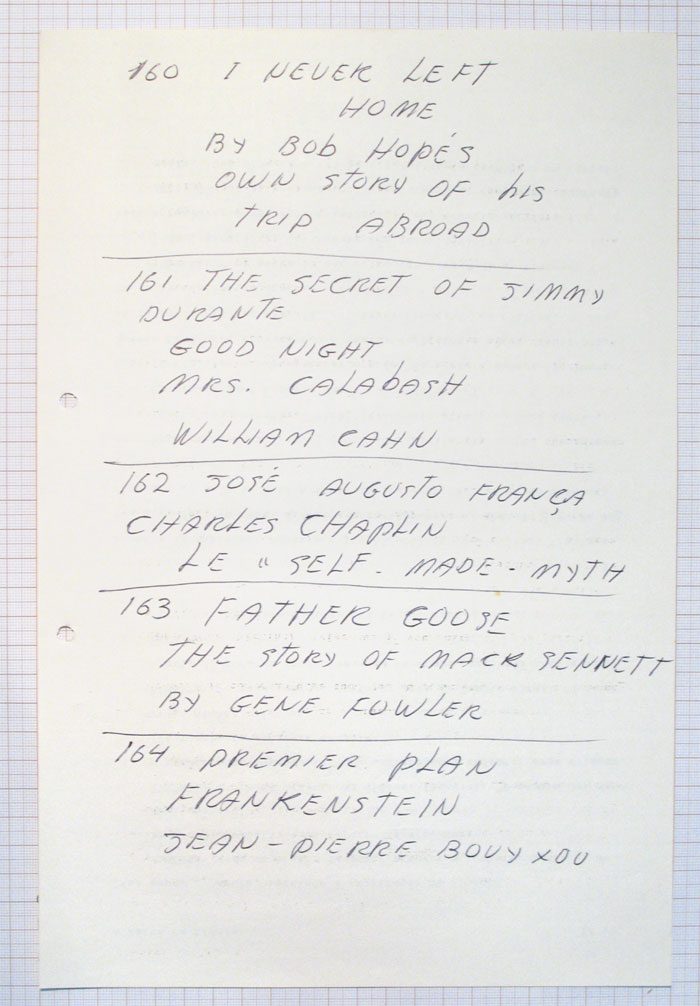 160 I NEVER LEFT
HOME
By Bob Hope's
OWN story OF his
TRIP ABROAD
161 THE SECRET OF JIMMY
DURANTE
GOOD NIGHT
MRS. CALAbASH
WILLIAM CAHN
162 JOSÉ AUGUSTO FRANÇA
CHARLES CHAPLIN
LE " SELF - MADE - MYTH
163 FATHER GOOSE
THE story OF MACK SENNETT
By GENE FOWLER
164 PREMIER PLAN
FRANKENSTEIN
JEAN-PIERRE BOUYXOU